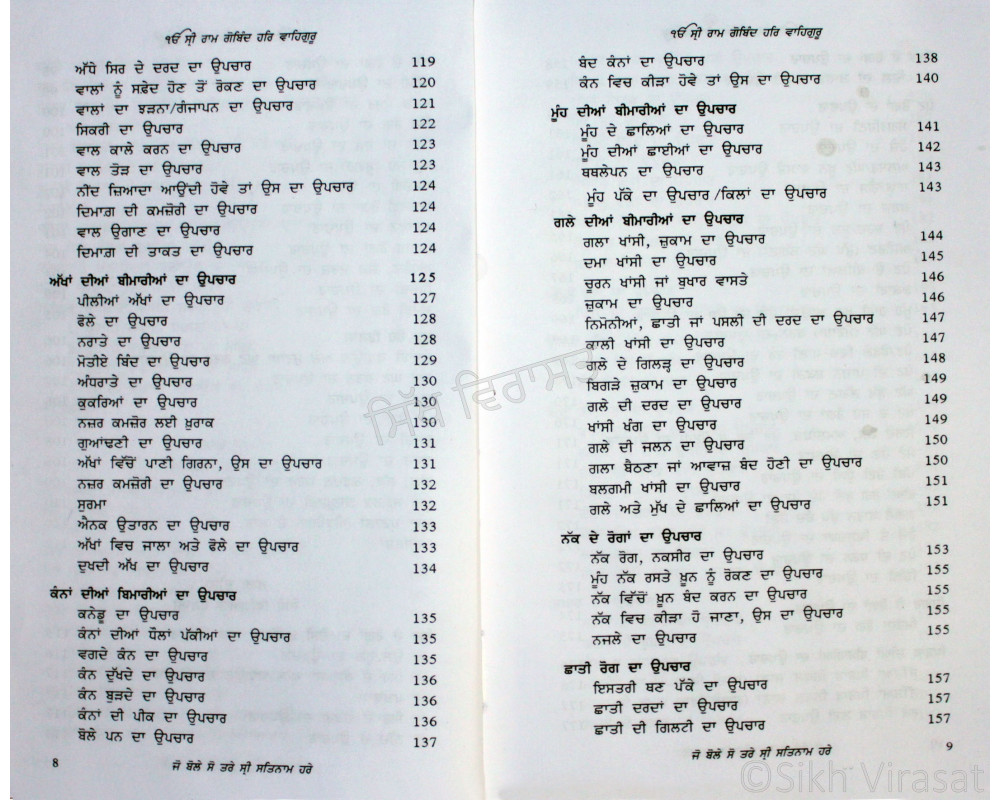 ੴ ਸ੍ਰੀ ਰਾਮ ਗੋਬਿੰਦ ਹਰਿ ਵਾਹਿਗੁਰੂ
ਅੱਧੇ ਸਿਰ ਦੇ ਦਰਦ ਦਾ ਉਪਚਾਰ 119
ਵਾਲਾਂ ਨੂੰ ਸਫ਼ੇਦ ਹੋਣ ਤੋਂ ਰੋਕਣ ਦਾ ਉਪਚਾਰ 120
ਵਾਲਾਂ ਦਾ ਝੜਨਾ/ਗੰਜਾਪਨ ਦਾ ਉਪਚਾਰ 121
ਸਿਕਰੀ ਦਾ ਉਪਚਾਰ 122
ਵਾਲ ਕਾਲੇ ਕਰਨ ਦਾ ਉਪਚਾਰ 123
ਵਾਲ ਤੋੜ ਦਾ ਉਪਚਾਰ 123
ਨੀਂਦ ਜ਼ਿਆਦਾ ਆਉਂਦੀ ਹੋਵੇ ਤਾਂ ਉਸ ਦਾ ਉਪਚਾਰ 124
ਦਿਮਾਗ਼ ਦੀ ਕਮਜ਼ੋਰੀ ਦਾ ਉਪਚਾਰ 124
ਵਾਲ ਉਗਾਣ ਦਾ ਉਪਚਾਰ 124
ਦਿਮਾਗ਼ ਦੀ ਤਾਕਤ ਦਾ ਉਪਚਾਰ 124
ਅੱਖਾਂ ਦੀਆਂ ਬੀਮਾਰੀਆਂ ਦਾ ਉਪਚਾਰ 125
ਪੀਲੀਆਂ ਅੱਖਾਂ ਦਾ ਉਪਚਾਰ 127
ਫੋਲੇ ਦਾ ਉਪਚਾਰ 128
ਨਰਾਤੇ ਦਾ ਉਪਚਾਰ 128
ਮੋਤੀਏ ਬਿੰਦ ਦਾ ਉਪਚਾਰ 129
ਅੰਧਰਾਤੇ ਦਾ ਉਪਚਾਰ 130
ਕੁਕਰਿਆਂ ਦਾ ਉਪਚਾਰ 130
ਨਜ਼ਰ ਕਮਜ਼ੋਰ ਲਈ ਖ਼ੁਰਾਕ 130
ਗੁਆਂਢਣੀ ਦਾ ਉਪਚਾਰ 131
ਅੱਖਾਂ ਵਿੱਚੋਂ ਪਾਣੀ ਗਿਰਨਾ, ਉਸ ਦਾ ਉਪਚਾਰ 131
ਨਜ਼ਰ ਕਮਜ਼ੋਰੀ ਦਾ ਉਪਚਾਰ 132
ਸੁਰਮਾ 132
ਐਨਕ ਉਤਾਰਨ ਦਾ ਉਪਚਾਰ 133
ਅੱਖਾਂ ਵਿਚ ਜਾਲਾ ਅਤੇ ਫੋਲੇ ਦਾ ਉਪਚਾਰ 133
ਦੁਖਦੀ ਅੱਖ ਦਾ ਉਪਚਾਰ 134
ਕੰਨਾਂ ਦੀਆਂ ਬਿਮਾਰੀਆਂ ਦਾ ਉਪਚਾਰ
ਕਨੇਡੂ ਦਾ ਉਪਚਾਰ 135
ਕੰਨਾਂ ਦੀਆਂ ਧੌਲਾਂ ਪੱਕੀਆਂ ਦਾ ਉਪਚਾਰ 135
ਵਗਦੇ ਕੰਨ ਦਾ ਉਪਚਾਰ 135
ਕੰਨ ਦੁੱਖਦੇ ਦਾ ਉਪਚਾਰ 136
ਕੰਨ ਬੁੜਦੇ ਦਾ ਉਪਚਾਰ 136
ਕੰਨਾਂ ਦੀ ਪੀਕ ਦਾ ਉਪਚਾਰ 136
ਬੋਲੇ ਪਨ ਦਾ ਉਪਚਾਰ 137
8 ਜੋ ਬੋਲੇ ਸੋ ਤਰੇ ਸ੍ਰੀ ਸਤਿਨਾਮ ਹਰੇ
ੴ ਸ੍ਰੀ ਰਾਮ ਗੋਬਿੰਦ ਹਰਿ ਵਾਹਿਗੁਰੂ
ਬੰਦ ਕੰਨਾਂ ਦਾ ਉਪਚਾਰ 138
ਕੰਨ ਵਿਚ ਕੀੜਾ ਹੋਵੇ ਤਾਂ ਉਸ ਦਾ ਉਪਚਾਰ 140
ਮੂੰਹ ਦੀਆਂ ਬੀਮਾਰੀਆਂ ਦਾ ਉਪਚਾਰ
ਮੂੰਹ ਦੇ ਛਾਲਿਆਂ ਦਾ ਉਪਚਾਰ 141
ਮੂੰਹ ਦੀਆਂ ਛਾਈਆਂ ਦਾ ਉਪਚਾਰ 142
ਥਥਲੇਪਨ ਦਾ ਉਪਚਾਰ 143
ਮੂੰਹ ਪੱਕੇ ਦਾ ਉਪਚਾਰ /ਕਿਲਾਂ ਦਾ ਉਪਚਾਰ 143
ਗਲੇ ਦੀਆਂ ਬੀਮਾਰੀਆਂ ਦਾ ਉਪਚਾਰ
ਗਲਾ ਖਾਂਸੀ, ਜ਼ੁਕਾਮ ਦਾ ਉਪਚਾਰ 144
ਦਮਾ ਖਾਂਸੀ ਦਾ ਉਪਚਾਰ 145
ਚੂਰਨ ਖਾਂਸੀ ਜਾਂ ਬੁਖਾਰ ਵਾਸਤੇ 146
ਜ਼ੁਕਾਮ ਦਾ ਉਪਚਾਰ 146
ਨਿਮੋਨੀਆਂ, ਛਾਤੀ ਜਾਂ ਪਸਲੀ ਦੀ ਦਰਦ ਦਾ ਉਪਚਾਰ 147
ਕਾਲੀ ਖਾਂਸੀ ਦਾ ਉਪਚਾਰ 147
ਗਲੇ ਦੇ ਗਿਲੜ੍ਹ ਦਾ ਉਪਚਾਰ 148
ਬਿਗੜੇ ਜ਼ੁਕਾਮ ਦਾ ਉਪਚਾਰ 149
ਗਲੇ ਦੀ ਦਰਦ ਦਾ ਉਪਚਾਰ 149
ਖਾਂਸੀ ਖੰਗ ਦਾ ਉਪਚਾਰ 149
ਗਲੇ ਦੀ ਜਲਨ ਦਾ ਉਪਚਾਰ 150
ਗਲਾ ਬੈਠਣਾ ਜਾਂ ਆਵਾਜ਼ ਬੰਦ ਹੋਣੀ ਦਾ ਉਪਚਾਰ 150
ਬਲਗਮੀ ਖਾਂਸੀ ਦਾ ਉਪਚਾਰ 151
ਗਲੇ ਅਤੇ ਮੁੱਖ ਦੇ ਛਾਲਿਆਂ ਦਾ ਉਪਚਾਰ 151
ਨੱਕ ਦੇ ਰੋਗਾਂ ਦਾ ਉਪਚਾਰ
ਨੱਕ ਰੋਗ, ਨਕਸੀਰ ਦਾ ਉਪਚਾਰ 153
ਮੂੰਹ ਨੱਕ ਰਸਤੇ ਖ਼ੂਨ ਨੂੰ ਰੋਕਣ ਦਾ ਉਪਚਾਰ 155
ਨੱਕ ਵਿੱਚੋਂ ਖ਼ੂਨ ਬੰਦ ਕਰਨ ਦਾ ਉਪਚਾਰ 155
ਨੱਕ ਵਿਚ ਕੀੜਾ ਹੋ ਜਾਣਾ, ਉਸ ਦਾ ਉਪਚਾਰ 155
ਨਜਲੇ ਦਾ ਉਪਚਾਰ 155
ਛਾਤੀ ਰੋਗ ਦਾ ਉਪਚਾਰ
ਇਸਤਰੀ ਥਣ ਪੱਕੇ ਦਾ ਉਪਚਾਰ 157
ਛਾਤੀ ਦਰਦਾਂ ਦਾ ਉਪਚਾਰ 157
ਛਾਤੀ ਦੀ ਗਿਲਟੀ ਦਾ ਉਪਚਾਰ 157
ਜੋ ਬੋਲੇ ਸੋ ਤਰੇ ਸ੍ਰੀ ਸਤਿਨਾਮ ਹਰੇ 9
ਸਿੱਖ ਵਿਰਾਸਤ
©Sikh Virasat